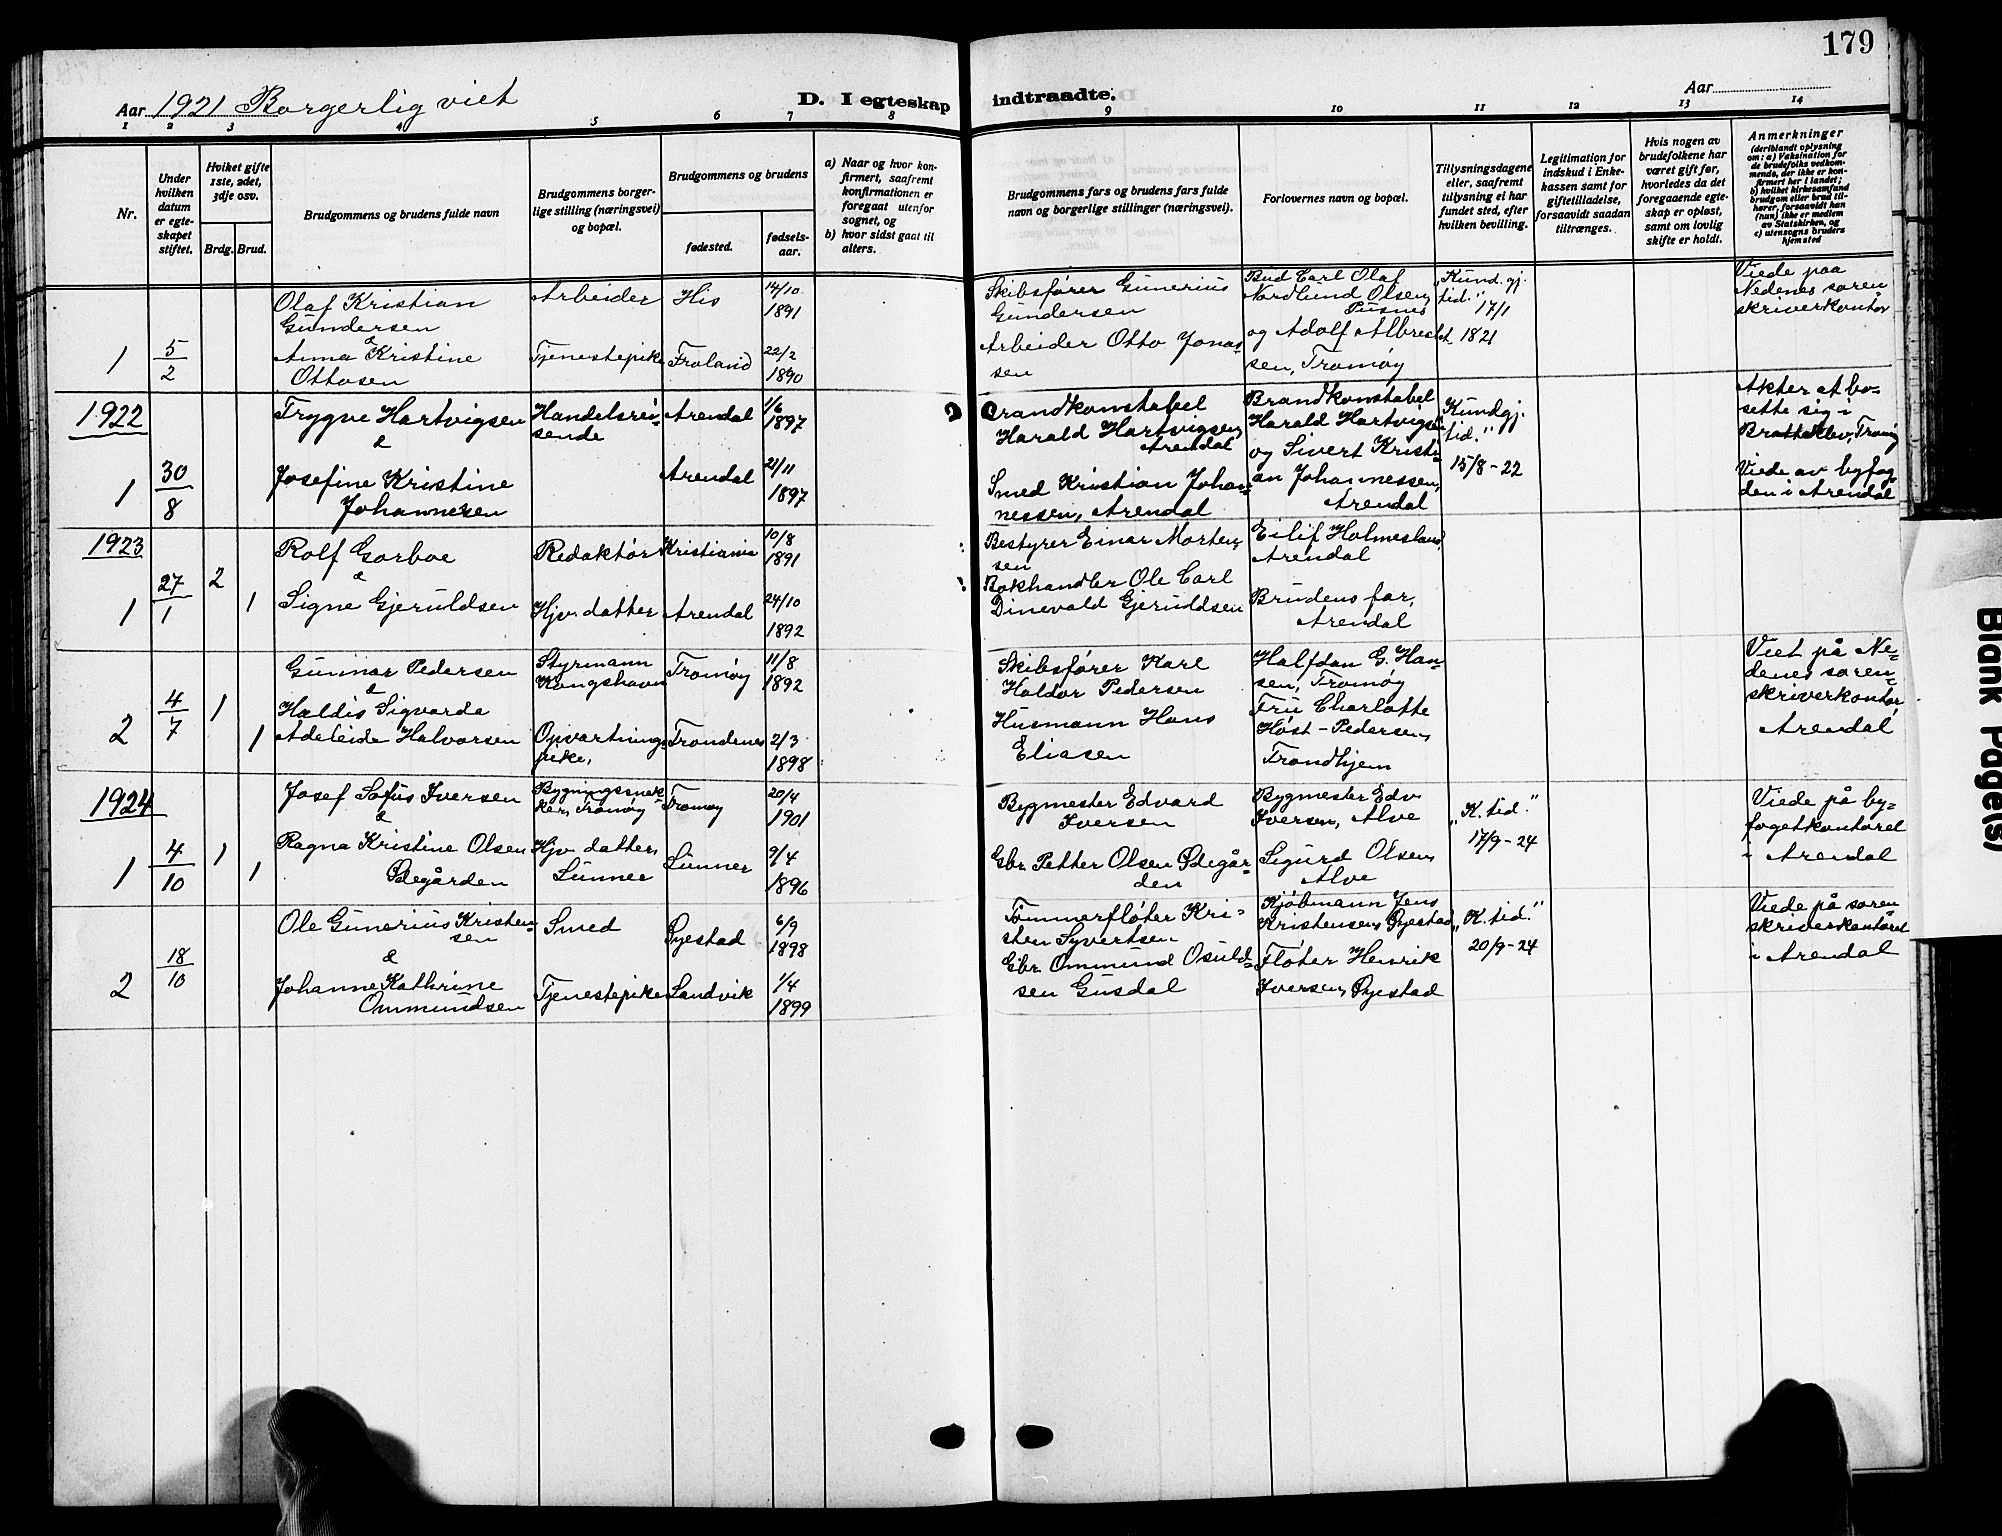 179
Aar 1921 Borgerlig viet
D. I egteskap indtraadte.
Aar
1 2 3 4 5 6 7 8 9 10 11 12 13 14
Nr.
Under
hvilken
datum
er egte-
skapet
stiftet.
Hvilket gifte
1ste, 2det,
3dje osv.
Brdg. Brud.
Brudgommens og brudens fulde navn
Brudgommens borger-
lige stilling (næringsvei)
og bopæl.
Brudgommens og brudens
fødested.
fødsels-
aar.
a) Naar og hvor kon-
firmert, saafremt
konfirmationen er
foregaat utenfor
sognet, og
b) hvor sidst gaat til
alters.
Brudgommens fars og brudens fars fulde
navn og borgerlige stillinger (næringsvei).
Forlovernes navn og bopæl.
Tillysningsdagene
eller, saafremt
tillysning ei har
fundet sted, efter
hvilken bevilling.
Legitimation for
indskud i Enke-
kassen samt for
giftetilladelse,
forsaavidt saadan
tiltrænges.
Hvis nogen av
brudefolkene har
været gift før,
hvorledes da det
foregaaende egte-
skap er opløst,
samt om lovlig
skifte er holdt.
Anmerkninger
(deriblandt oplysning
om: a) Vaksination for
de brudefolks vedkom-
mende, der ikke er kon-
firmert her i landet;
b) hvilket kirkesamfund
brudgom eller brud til-
hører, forsaavidt han
(hun) ikke er medlem
av Statskirken, og
c) utensogns bruders
hjemsted
1
5/2
Olaf Kristian
Gundersen
&
Anna Kristine
Ottosen
Arbeider
Tjenestepike
His
Froland
14/10
1891
22/2
1890
Skibsfører Gunerius
Gundersen
Arbeider Otto Jonas-
sen
Bud Carl Olaf
Nordlund Olsen,
Pusnes
og Adolf Albrecht
sen, Tromøy
"Kund. gj.
tid."
17/1
1821
Viede paa
Nedenes soren
skriverkontor
1922
1
30/8
Trygve Hartvigsen
&
Josefine Kristine
Johannesen
Handelsrei-
sende
Arendal
Arendal
1/6
1897
21/11
1897
Brandkonstabel
Harald Hartvigsen,
Arendal
Smed Kristian Johan-
nessen, Arendal
Brandkonstabel
Harald Hartvigsen
og Sivert Kristi-
an Johannessen,
Arendal
Kundgj.
tid."
15/8-22
Akter at bo-
sette sig i
Brattekley, Tromøy
Viede av byfog-
den i Arendal
1923
1
27/1
2
1
Rolf Gorboe
&
Signe Gjeruldsen
Redaktør
Hjv. datter
Kristiania
Arendal
10/8
1891
24/10
1892
Bestyrer Einar Morten-
sen
Bokhandler Ole Carl
Dinevald Gjeruldsen
Eilif Holmesland,
Arendal
Brudens far,
Arendal
2
4/7
1
1
Gunnar Pedersen
&
Haldis Sigvarda
Adeleide Halvorsen
Styrmann
Kongshavn
Opvartnings
pike,
Tromøy
Trondenes
11/8
1892
2/3
1898
Skibsfører Karl
Haldor Pedersen
Husmann Hans
Eliasen
Halfdan G. Han-
sen, Tromøy
Fru Charlotte
Høst-Pedersen,
Trondhjem
Viet på Ne-
denes soren-
skriverkontor,
Arendal
1924
1
4/10
1
1
Josef Sofus Iversen
&
Ragna Kristine Olsen
Ødegården
Bygningssnek-
ker, Tromøy
Hjv. datter,
Lunner
Tromøy
Lunner
20/4
1901
9/4
1896
Bygmester Edvard
Iversen
Gbr. Petter Olsen Ødegår-
den
Bygmester Edv
Iversen, Alve
Sigurd Olsen,
Alve
"K. tid."
17/9-24
Viede på by-
fogetkontoret
i Arendal
2
18/10
Ole Gunerius Kristen-
sen
&
Johanne Kathrine
Ommundsen
Smed
Tjenestepike
Øyestad
Landvik
6/9
1898
1/4
1899
Tømmerfløter Kri-
sten Syvertsen
Gbr. Ommund Osuld-
sen Gusdal
Kjøbmann Jens
Kristensen, Øyestad
Fløter Henrik
Iversen, Øyestad
"K. tid."
20/9-24
Viede på soren
skriverkontoret
i Arendal
Blank Page(s)